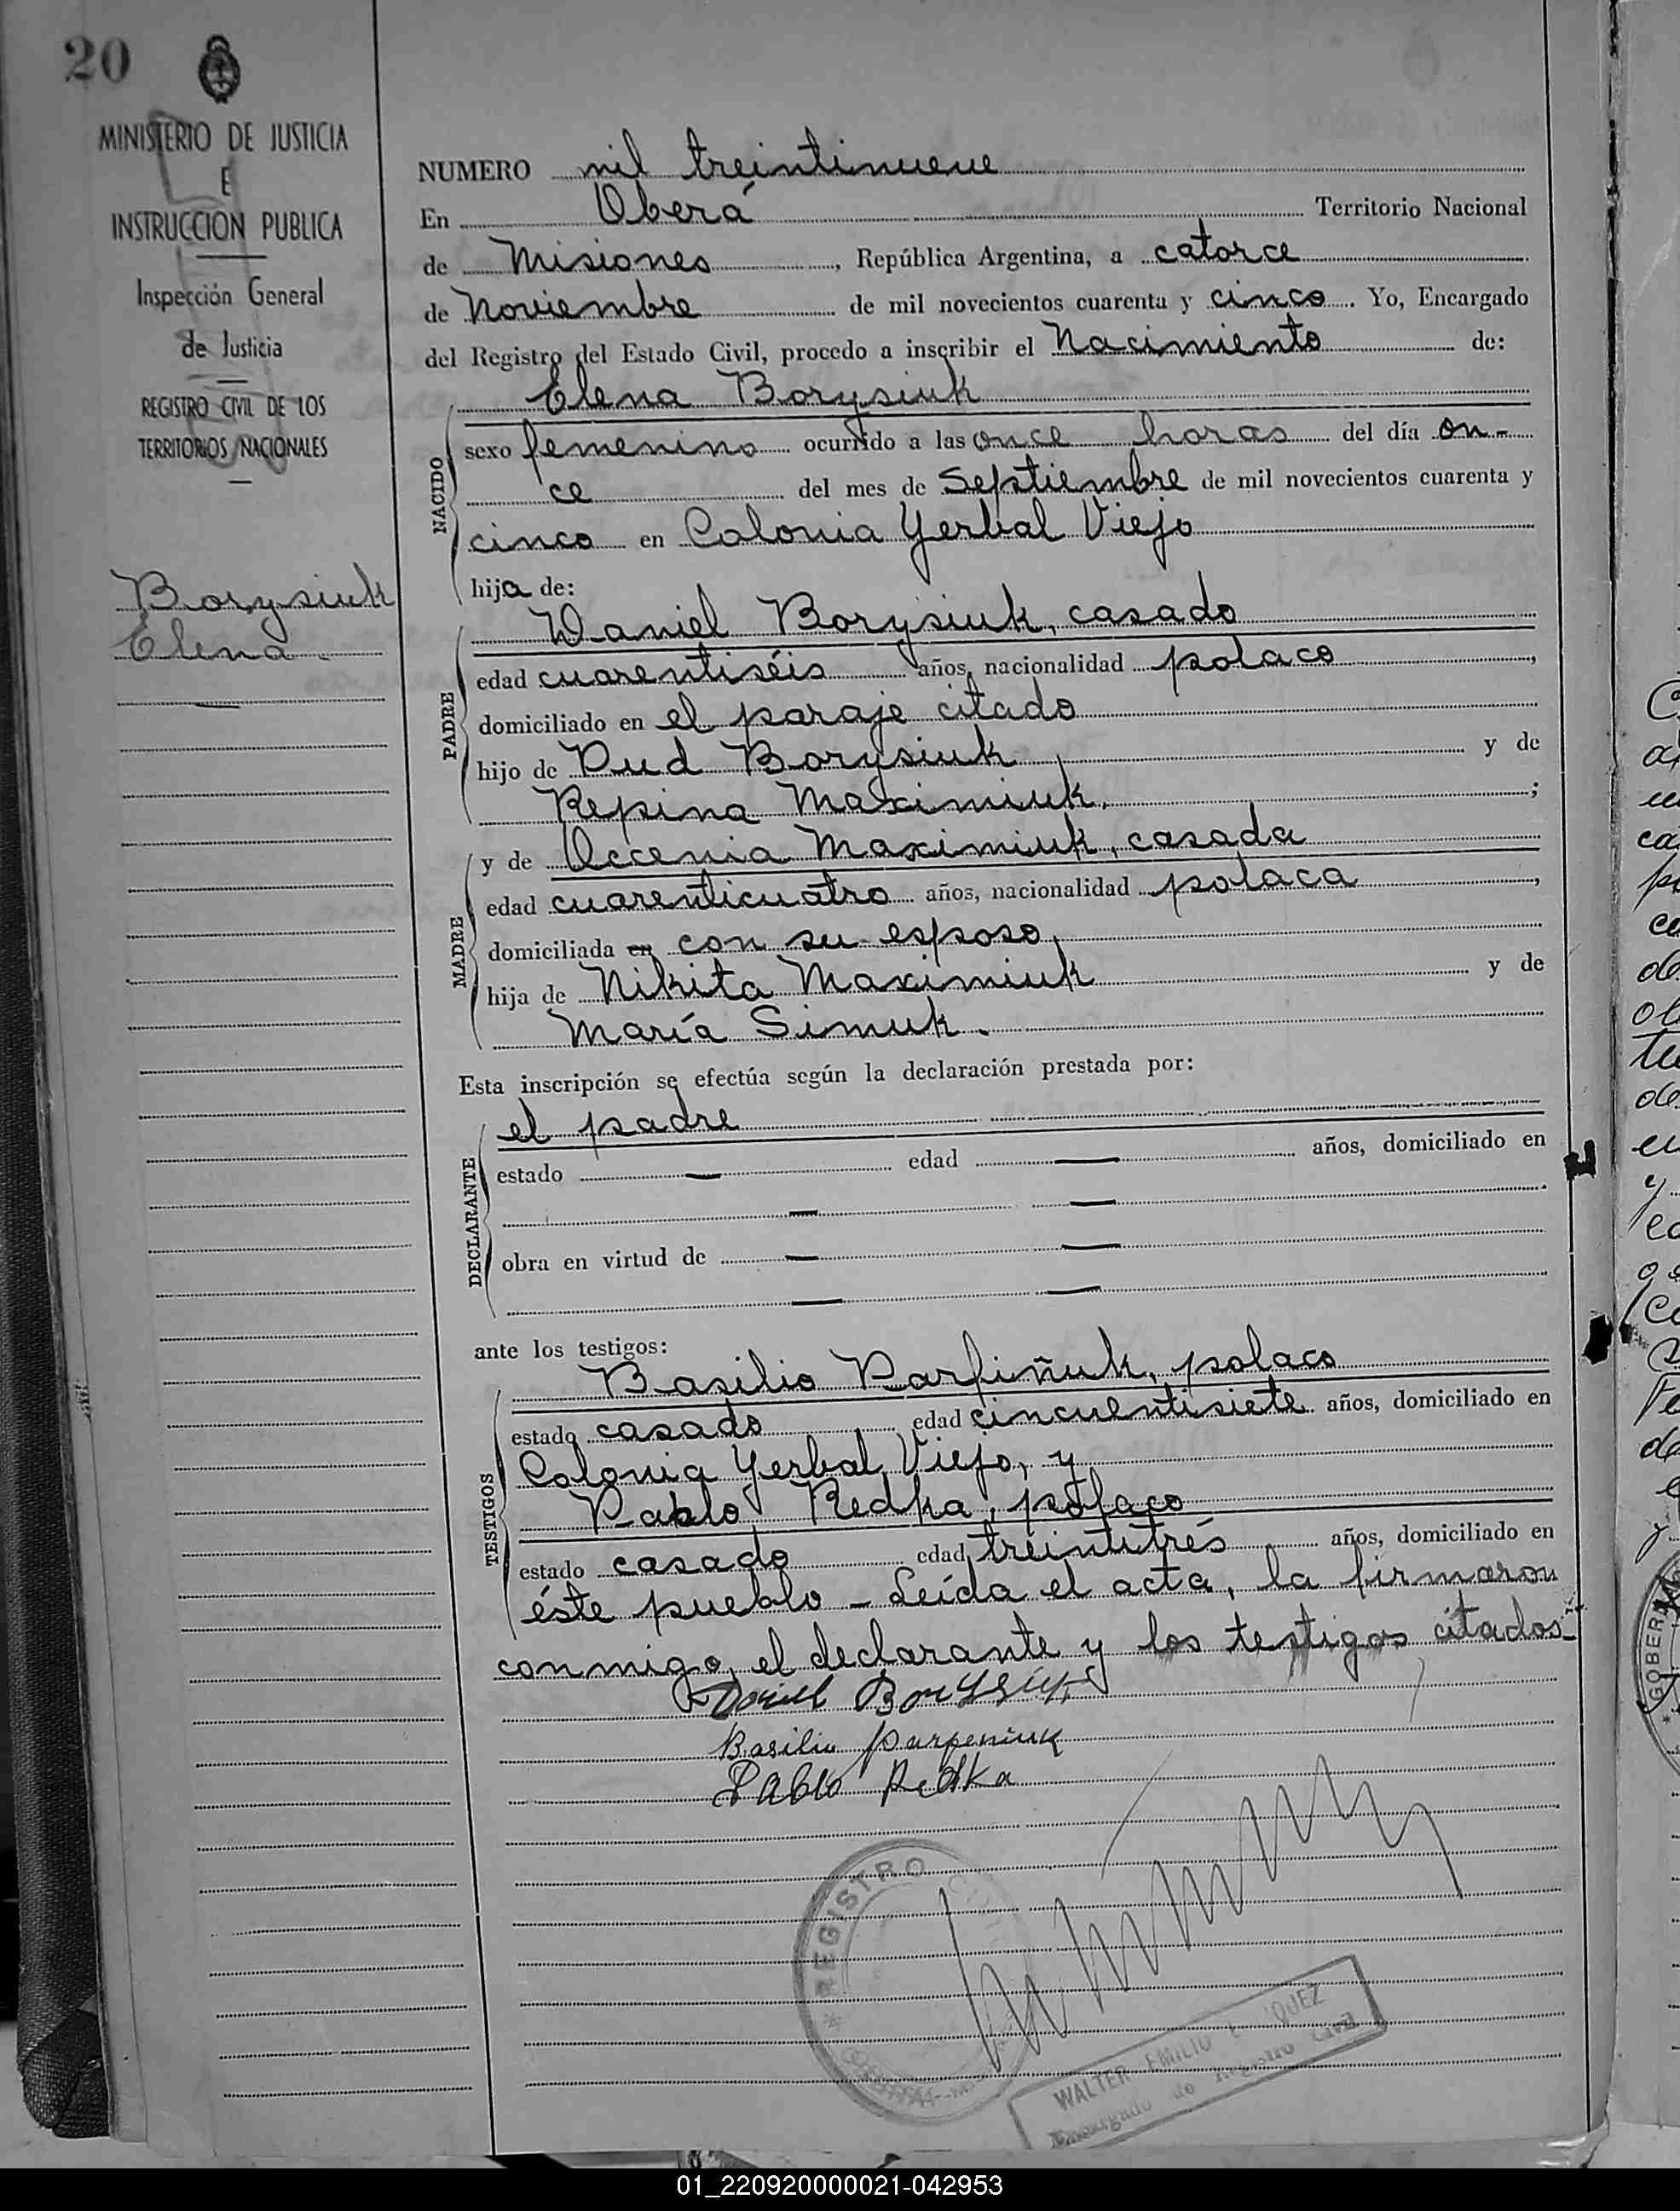 20
MINISTERIO DE JUSTICIA
E
INSTRUCCIÓN PUBLICA
Inspección General
de Justicia
REGISTRO CIVIL DE LOS
TERRITORIOS NACIONALES
Borysiuk
Elena
NUMERO mil treintinueve
En Oberá Territorio Nacional
de Misiones, República Argentina, a catorce
de Noviembre de mil novecientos cuarenta y cinco. Yo, Encargado
del Registro del Estado Civil, procedo a inscribir el Nacimiento de:
NACIDO
Elena Borysiuk
sexo femenino ocurrido a las once horas del día on-
ce del mes de Septiembre de mil novecientos cuarenta y
cinco en Colonia Yerbal Viejo
hija de:
PADRE
Daniel Borysiuk, casado
edad cuarentiséis años, nacionalidad polaco,
domiciliado en el paraje citado
hijo de Dud Borysiuk, y de
Repina Maximiuk. ;
MADRE
y de Accenia Maximiuk, casada
edad cuarenticuatro años, nacionalidad polaca,
domiciliada en con su esposo,
hija de Nikita Maximiuk y de
María Simuk.
Esta inscripción se efectúa según la declaración prestada por:
DECLARANTE
el padre
estado — edad — años, domiciliado en
— —
obra en virtud de — —
— —
ante los testigos:
TESTIGOS
Basilio Parfiñuk, polaco
estado casado edad cincuentisiete años, domiciliado en
Colonia Yerbal Viejo, y
Pablo Redka, polaco
estado casado edad treintitrés años, domiciliado en
éste pueblo - Leída el acta, la firmaron
conmigo, el declarante y los testigos citados-
Basilio Parfeniuk
Pablo Redka
REGISTRO
WALTER EMILIO
Encargado de Registro Civil
GOBER
01_220920000021-042953